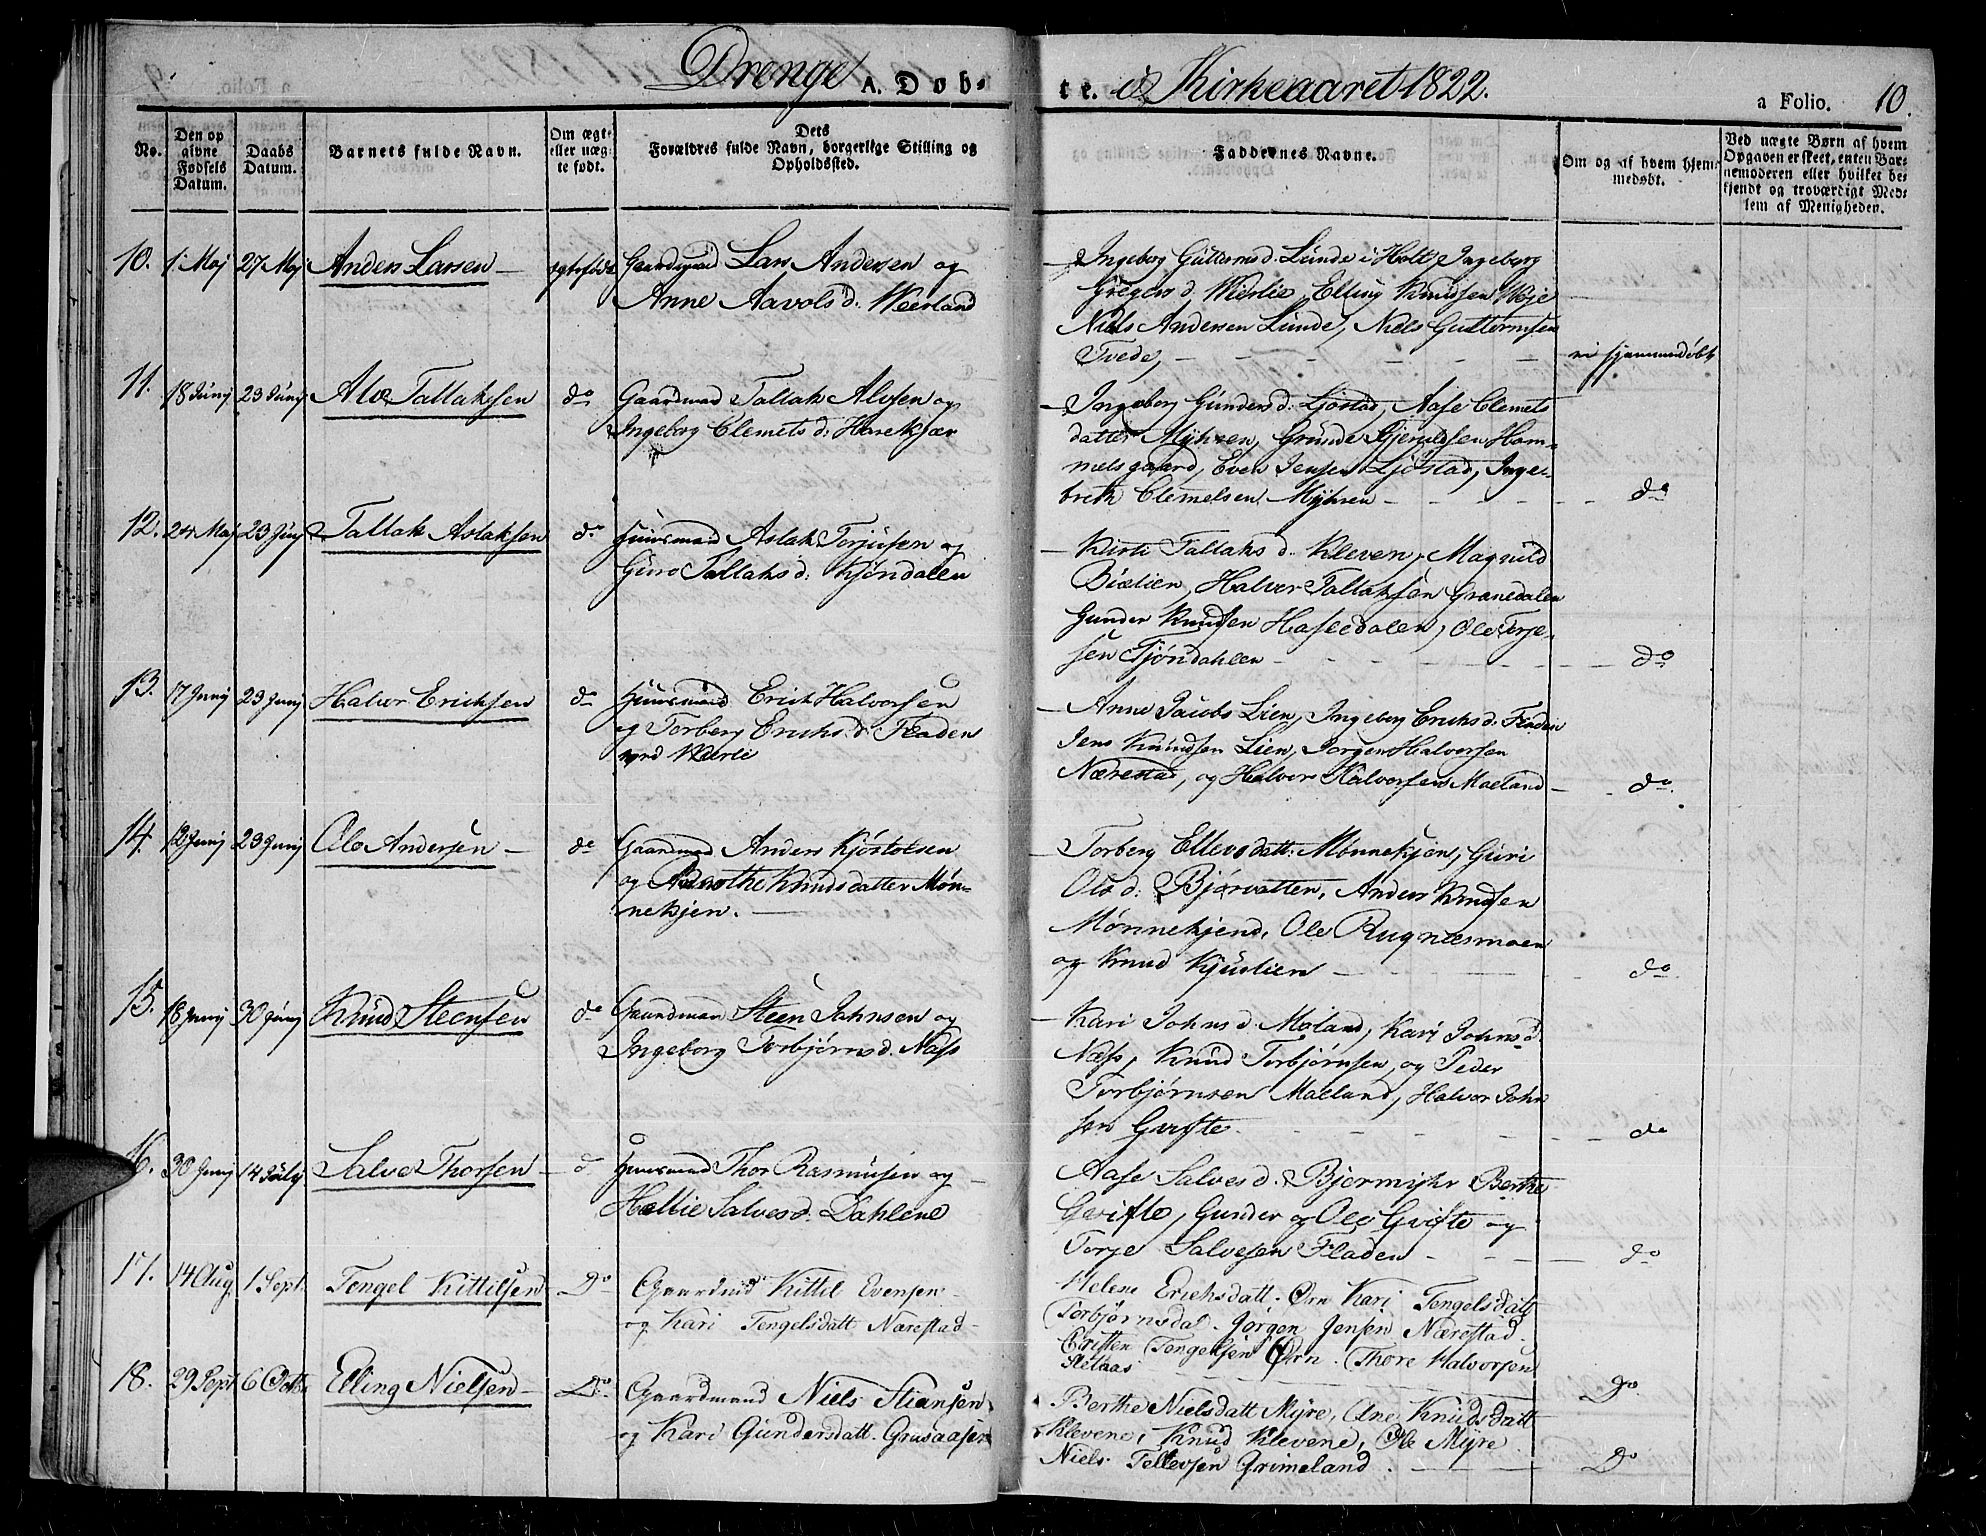 Drenge A. Døb-
te. i Kirkeaaret 1822.
a Folio. 10.
No.
Den opgivne Fødsels Datum.
Daabs Datum.
Barnets fulde Navn.
Om ægte eller uægte født.
Dets Forældres fulde Navn, borgerlige Stilling og Opholdssted.
Faddernes Navne.
Om og af hvem hjemmedøbt.
Ved uægte Børn af hvem
Opgaven er skeet, enten Bar-
nemoderen eller hvilket be-
kjendt og troværdigt Med-
lem af Menigheden.
10. 1 Maj 27 Maj Anders Larsen — ægtefødt Gaardmand Lars Andersen og
Anne Aavolsd. Weerland
Ingeborg Guttormsd Lunde i Holt, Ingeborg
Gregersd. Wierlie, Elling Knudsen Woje
Niels Andersen Lunde, Niels Guttormsen
Tvede, — ei hjemmedøbt
11. 18 Junj 23 Junj Alv Tallaksen do Gaardmand Tallak Alvsen og
Ingeborg Clemetsd. Harekjær
Ingeborg Gundersd. Ljøstad, Aase Clemets
datter Myhren, Grunde Gjeruldsen Ham-
melsgaard, Even Jensen Ljøstad, Inge-
brith Clemetsen Myhren — do
12. 24 Maj 23 Junj Tallak Aslaksen do Huusmand Aslak Torjusen og
Guro Tallaksd: Kjøndalen
Kirsti Tallaksd. Kleven, Magnild
Biælien, Halvor Tallaksen Granedalen
Gunder Knudsen Haseedalen, Ole Terje-
sen Tjøndahlen — do
13. 17 Junj 23 Junj Halvor Erichsen do Huusmand Erich Halvorsen
og Torberg Erichsd. Fladen
ved Weerli
Anne Jacobs Lien, Ingeborg Erichsd. Fladen
Jens Knudsen Lien, Jorgen Halvorsen
Nærestad, og Halvor Halvorsen Moeland — do.
14. 12 Junj 23 Junj Ole Andersen — do Gaardmand Anders Kjøstolsen
og Dorothe Knudsdatter Møn-
nekjen. —
Torberg Ellevsdatt: Mønnekjen, Guri
Olsd: Bjørvatten, Anders Knudsen
Mønnekjend, Ole Rugnæsmoen
og Knud Kjustien — do
15. 18 Junj 30 Junj Knud Steensen do Gaardmand Steen Johnsen og
Ingeborg Torbjørnsd. Næss
Kari Johnsd. Moland, Kari Johnsd.
Næss, Knud Torbjørnsen, og Peder
Torbjørnsen Moeland, Halvor John
sen Gvifte. — do
16. 30 Junj 14 July Salve Thorsen — d Huusmand Thor Rasmusen og
Hællie Salvesd. Dahlene
Aase Salvesd. Bjermyhr Berthe
Gvifte, Gunder og Ole Gvifte og
Torje Salvesen Fladen — do
17. 14 Aug. 1 Sept. Tengel Kittilsen Do Gaardmd Kittil Evensen —
og Kari Tengelsdatt Nærestad —
Helene Erichsdatt. Ørn Kari Tengelsdatt
Torbjørnsdal. Jørgen Jensen Nærestad.
Cristen Tengelsen Ørn. Thore Halvorsen
Do
18. 29 Sept 6 Octb. Elling Nielsen — Do Gaardmand Niels Stiansen
og Kari Gundersdatt. Grusaasen
Berthe Nielsdatt Myre, Ane Knudsdatt
Klevene, Knud Klevene, Ole Myre
Niels Tellevsen Grimeland. — Do